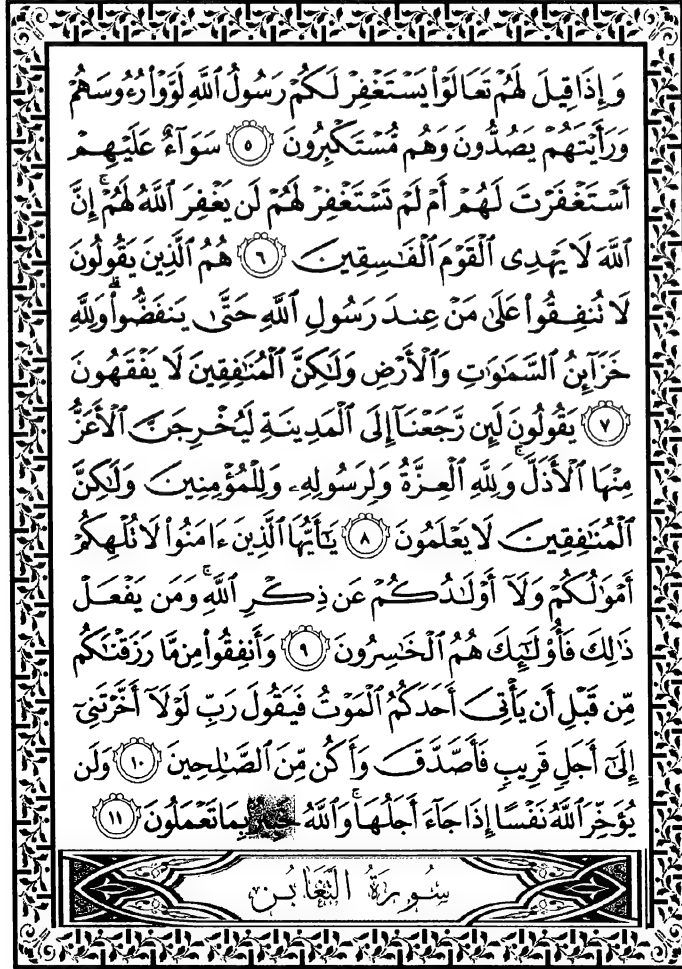 وَإِذَا قِيلَ لَهُمْ تَعَالَوْا۟ يَسْتَغْفِرْ لَكُمْ رَسُولُ ٱللَّهِ لَوَّوْا۟ رُءُوسَهُمْ
وَرَأَيْتَهُمْ يَصُدُّونَ وَهُم مُّسْتَكْبِرُونَ ٥ سَوَآءٌ عَلَيْهِمْ
أَسْتَغْفَرْتَ لَهُمْ أَمْ لَمْ تَسْتَغْفِرْ لَهُمْ لَن يَغْفِرَ ٱللَّهُ لَهُمْ ۚ إِنَّ
ٱللَّهَ لَا يَهْدِى ٱلْقَوْمَ ٱلْفَـٰسِقِينَ ٦ هُمُ ٱلَّذِينَ يَقُولُونَ
لَا تُنفِقُوا۟ عَلَىٰ مَنْ عِندَ رَسُولِ ٱللَّهِ حَتَّىٰ يَنفَضُّوا۟ ۗ وَلِلَّهِ
خَزَآئِنُ ٱلسَّمَـٰوَٰتِ وَٱلْأَرْضِ وَلَـٰكِنَّ ٱلْمُنَـٰفِقِينَ لَا يَفْقَهُونَ
٧ يَقُولُونَ لَئِن رَّجَعْنَآ إِلَى ٱلْمَدِينَةِ لَيُخْرِجَنَّ ٱلْأَعَزُّ
مِنْهَا ٱلْأَذَلَّ ۚ وَلِلَّهِ ٱلْعِزَّةُ وَلِرَسُولِهِۦ وَلِلْمُؤْمِنِينَ وَلَـٰكِنَّ
ٱلْمُنَـٰفِقِينَ لَا يَعْلَمُونَ ٨ يَـٰٓأَيُّهَا ٱلَّذِينَ ءَامَنُوا۟ لَا تُلْهِكُمْ
أَمْوَٰلُكُمْ وَلَآ أَوْلَـٰدُكُمْ عَن ذِكْرِ ٱللَّهِ ۚ وَمَن يَفْعَلْ
ذَٰلِكَ فَأُو۟لَـٰٓئِكَ هُمُ ٱلْخَـٰسِرُونَ ٩ وَأَنفِقُوا۟ مِن مَّا رَزَقْنَـٰكُم
مِّن قَبْلِ أَن يَأْتِىَ أَحَدَكُمُ ٱلْمَوْتُ فَيَقُولَ رَبِّ لَوْلَآ أَخَّرْتَنِىٓ
إِلَىٰٓ أَجَلٍ قَرِيبٍ فَأَصَّدَّقَ وَأَكُن مِّنَ ٱلصَّـٰلِحِينَ ١٠ وَلَن
يُؤَخِّرَ ٱللَّهُ نَفْسًا إِذَا جَآءَ أَجَلُهَا ۚ وَٱللَّهُ بِمَا تَعْمَلُونَ ١١
سُورَةُ التَّغَابُنِ